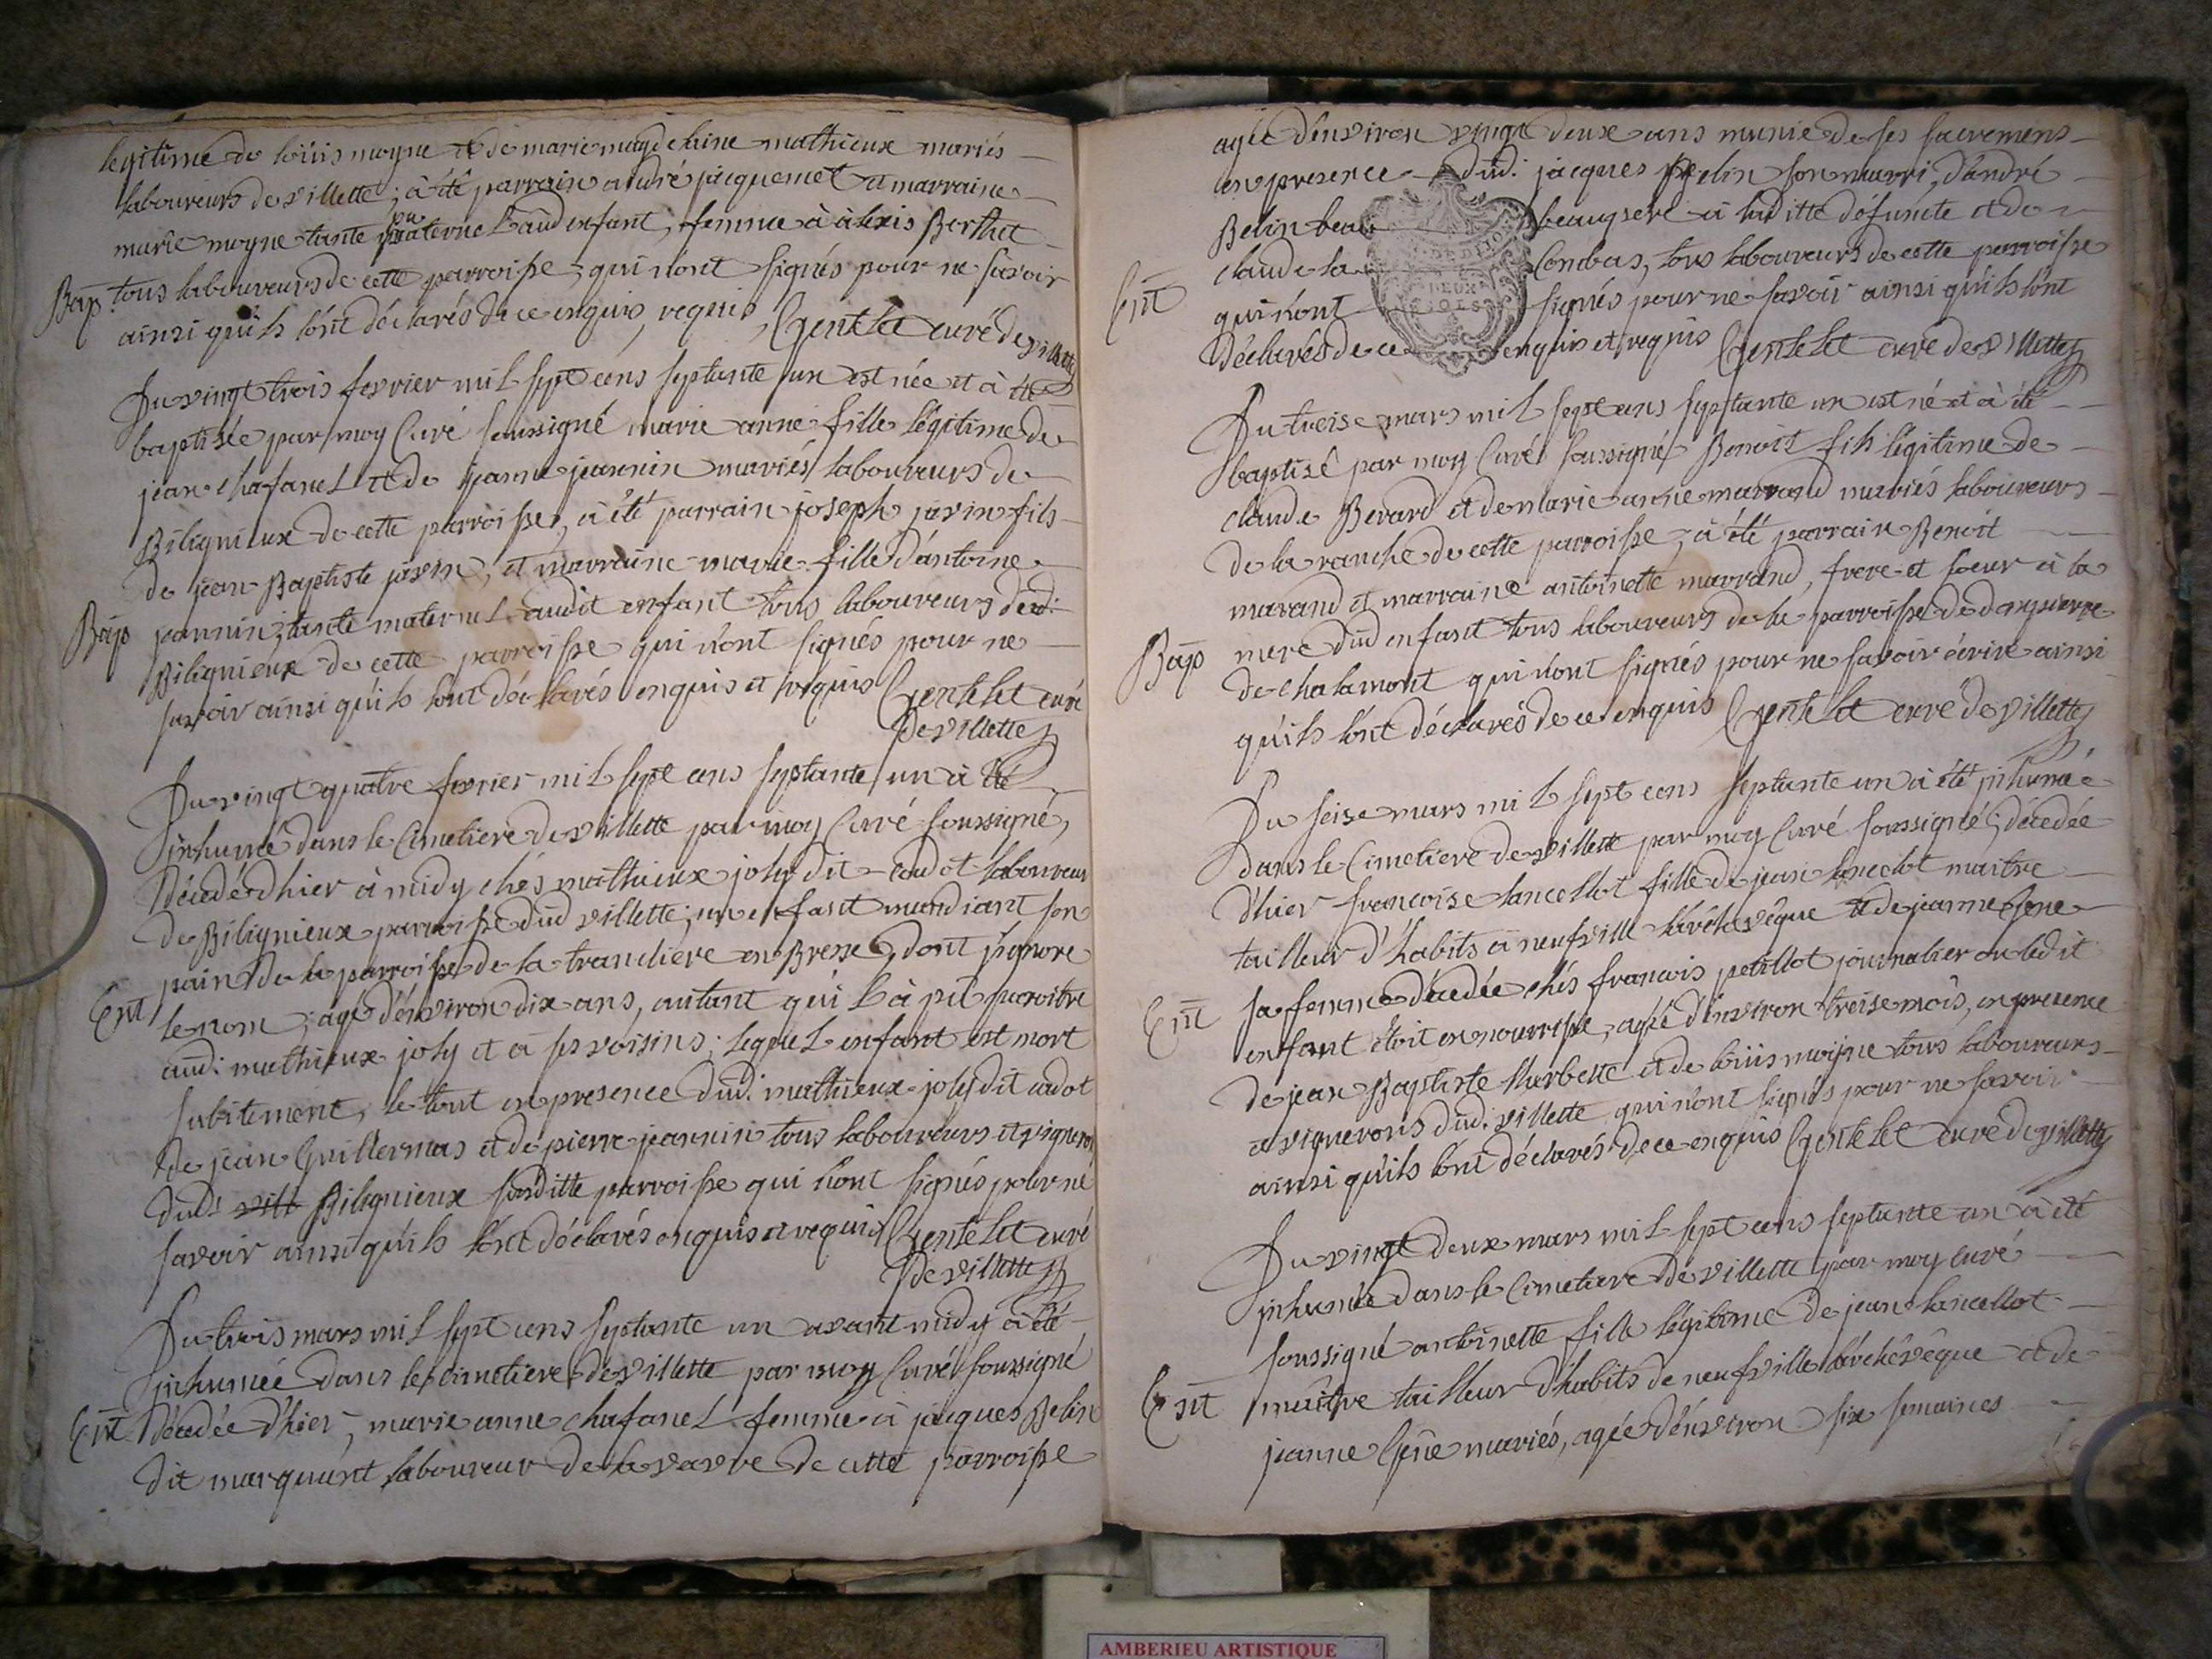 legitime de loüis moyne et de marie magdelaine mathieux mariés
laboureurs de villette; à été parrain andré jacquemet et marraine
marie moyne tante paternel aud enfant, femme à alexis Berthet
Bap. tous laboureurs de cette parroisse, qui n'ont signés pour ne savoir
ainsi qu'ils l'ont déclarés de ce enquis, requis, Gentelet curé de villette
Du vingt trois fevrier mil sept cens septante un est née et à été
baptisée par moy Curé soussigné marie anne fille légitime de
jean chafanel et de jeanne jeannin mariés laboureurs de
Bilignieux de cette parroisse, à été parrain joseph javin fils
de jean Baptiste javin, et marraine marie fille d'antoine
Bap jeannin, tante maternel audit enfant tous laboureurs dud:
Bilignieux de cette parroisse qui n'ont signés pour ne
savoir ainsi qu'ils l'ont déclarés enquis et requis Gentelet curé
de villette
Du vingt quatre fevrier mil sept cens septante un à été
inhumé dans le Cimetiere de villette par moy Curé soussigné,
décédé d'hier à midy chés mathieux joly dit cadot laboureur
de Bilignieux parroisse dud villette, un enfant mandiant son
pain de la parroisse de la trancliere en Bresse, dont j'ignore
Ent le nom; agé d'environ dix ans, autant qu'il à pû paroitre
aud: mathieux joly et à ses voisins; lequel enfant est mort
subitement, le tout en presence dud. mathieux joly dit cadot
de jean Guillermas et de pierre jeannin tous laboureurs et vignerons
dud: vill Bilignieux susditte parroisse qui n'ont signés pour ne
savoir ainsi qu'ils l'ont déclarés enquis et requis Gentelet curé
de villette
Du trois mars mil sept cens septante un avant midy à été
inhumée dans le cimetiere de villette par moy Curé soussigné
Ent décédée d'hier, marie anne chafanel femme à jacques Belin
dit marquant laboureur de la vavre de cette parroisse
agée d'environ vingt deux ans munie de ses sacremens
en presence dud: jacques Belin son marri, d'andré
Belin beau beaupere à laditte défuncte et de
claude la Combas, tous laboureurs de cette parroisse
Ent qui n'ont signés pour ne savoir ainsi qu'ils l'ont
déclarés de ce enquis et requis Gentelet curé de villette
Du treise mars mil sept cens septante un est né et à été
baptisé par moy Curé soussigné Benoit fils légitime de
claude Berard et de marie anne marrand mariés laboureurs
de la ranche de cette parroisse, à été parrain Benoit
marand et marraine antoinette marrand, frere et soeur à la
Bap mere dud enfant tous laboureurs de la parroisse de dompierre
de chalamont qui n'ont signés pour ne savoir écrire ainsi
qu'ils l'ont déclarés de ce enquis Gentelet curé de villette
Du seise mars mil sept cens septante un à été inhumée
dans le Cimetiere de villette par moy Curé soussigné, décédée
d'hier francoise lancellot fille de jean lancelot maitre
tailleur d'habits à neufville larchevêque et de jeanne Gene
Ent sa femme décédée chés francois petillot journalier ou ledit
enfant étoit en nourrisse, agée d'environ treise mois, en presence
de jean Baptiste lherbette et de loüis moyne tous laboureurs
et vignerons dud: villette qui n'ont signés pour ne savoir
ainsi qu'ils l'ont déclarés de ce enquis Gentelet curé de villette
Du vingt deux mars mil sept cens septante un à été
inhumée dans le Cimetiere de villette par moy curé
soussigné antoinette fille légitime de jean lancellot
Ent maitre tailleur d'habits de neufville larchevêque et de
jeanne Gene mariés, agée d'environ six semaines
AMBERIEU ARTISTIQUE